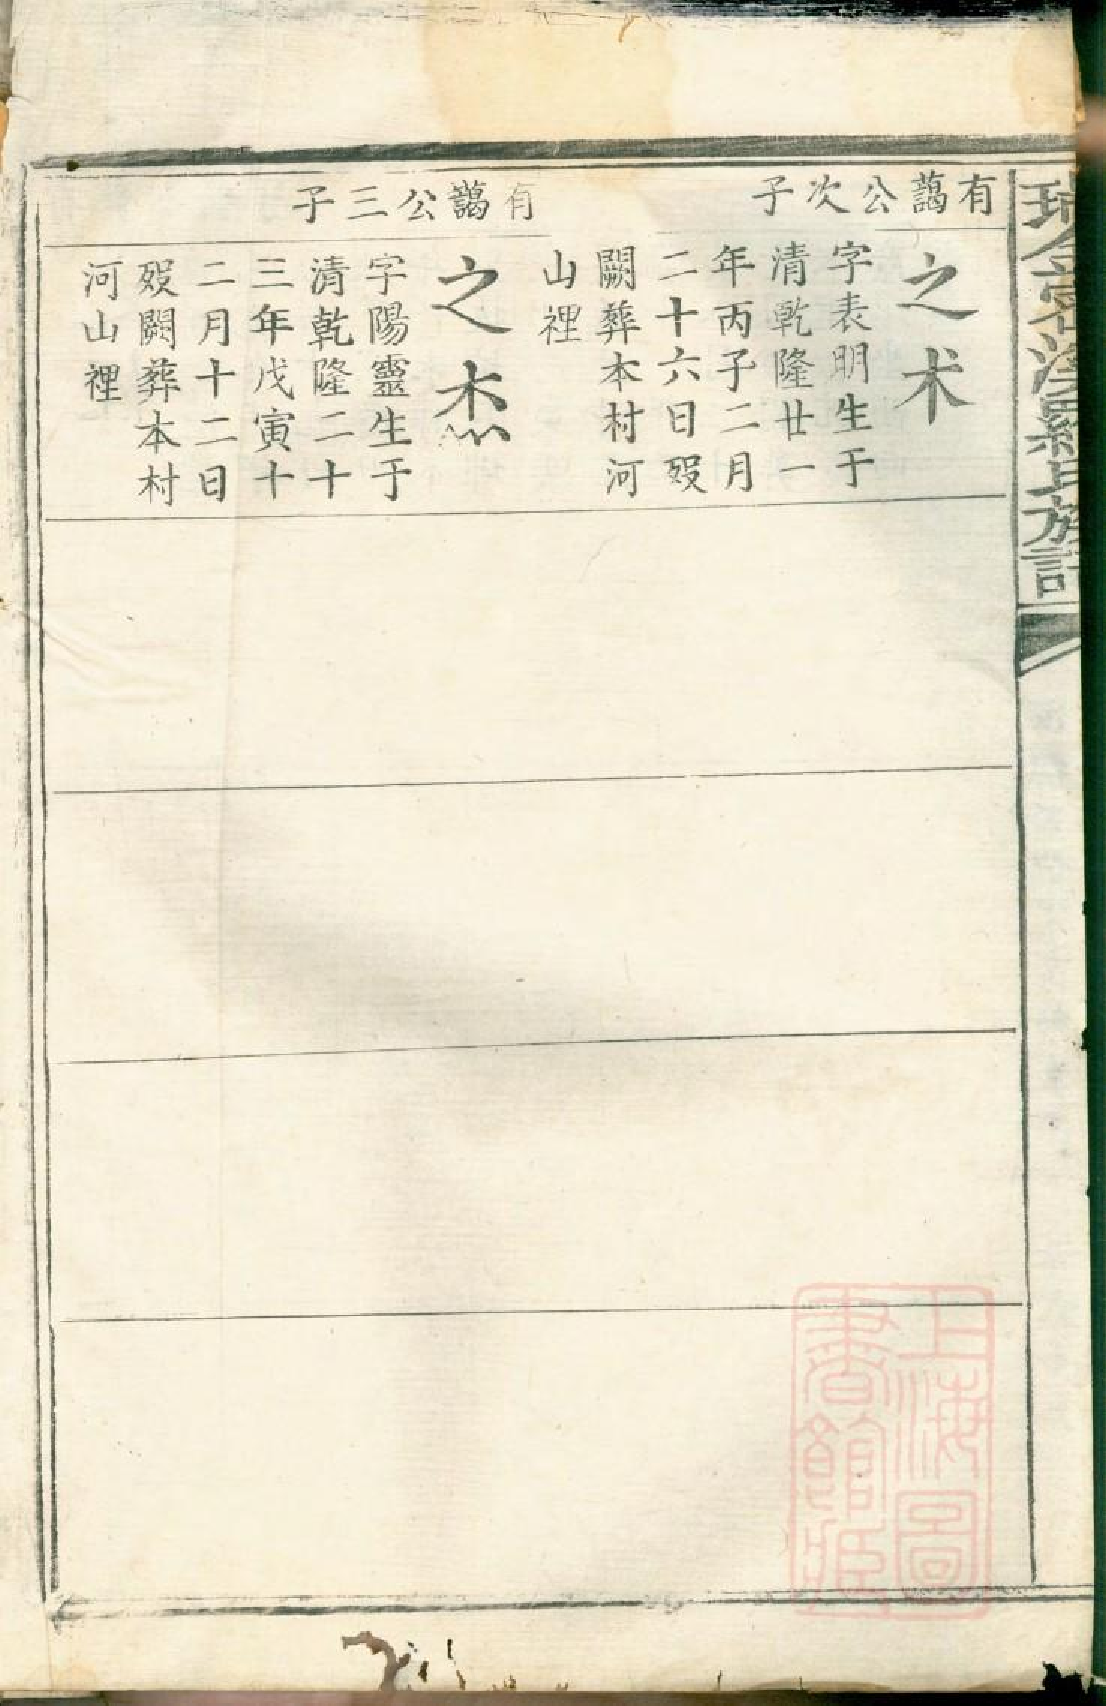 有藹公次子
之术
字表明生于
清乾隆廿一
年丙子二月
二十六日殁
闕葬本村河
山裡
有藹公三子
之杰
字陽靈生于
清乾隆二十
三年戊寅十
二月十二日
殁闕葬本村
河山裡
羅氏族譜
上海圖
書館藏